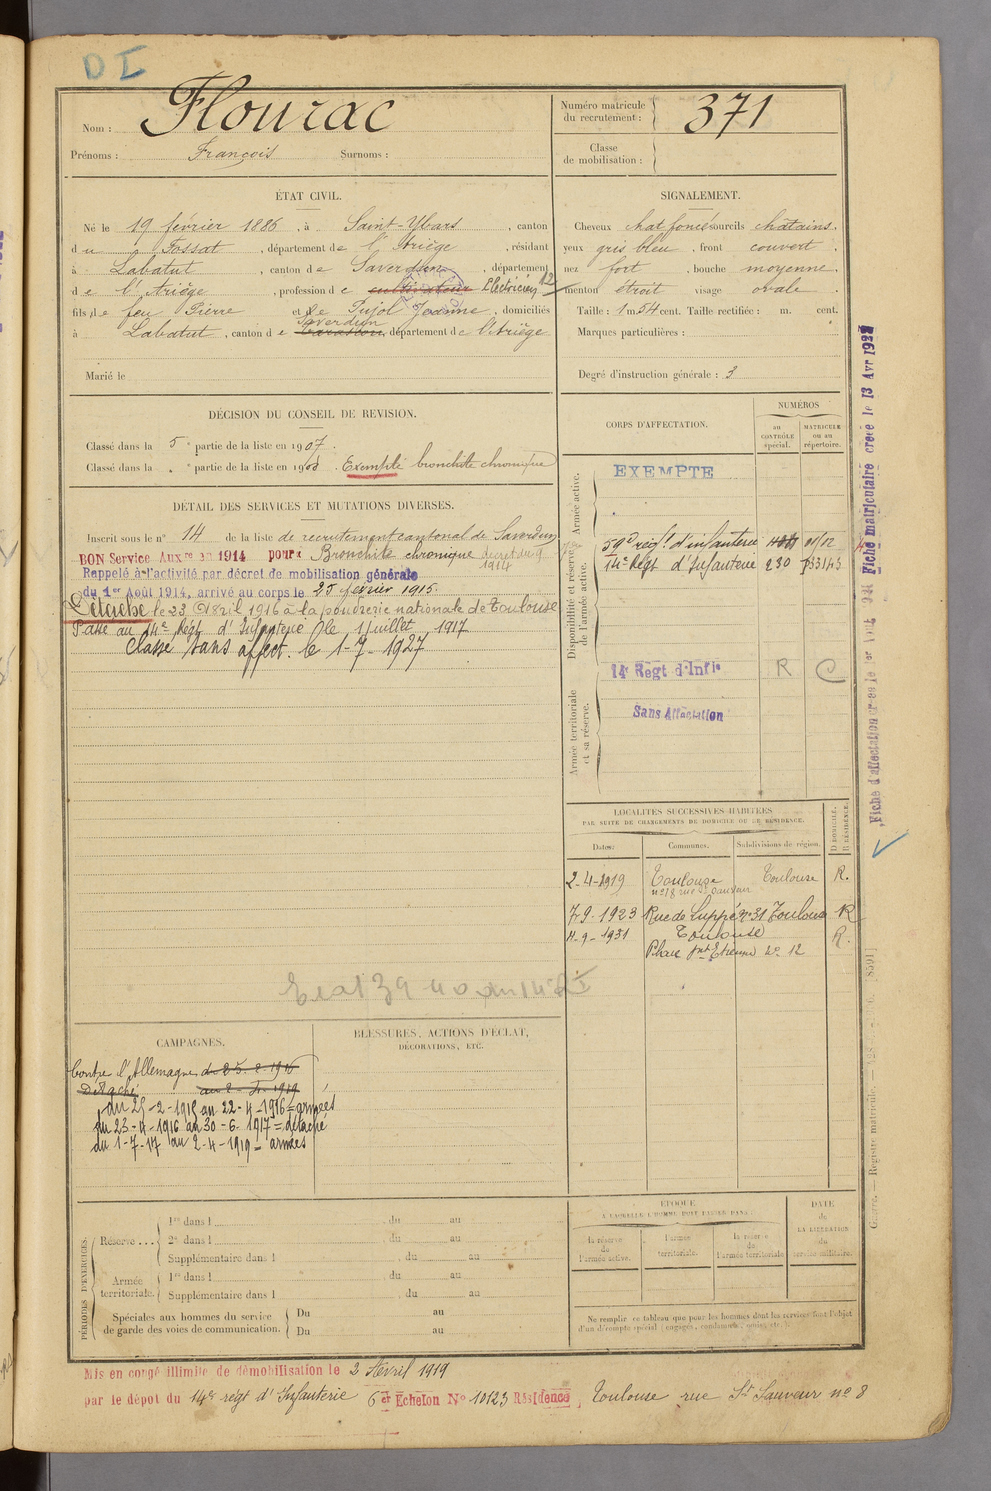 D I
Nom : Flourac
Prénoms : François Surnoms :
Numéro matricule du recrutement : 371
Classe de mobilisation :
ÉTAT CIVIL.
Né le 19 février 1886, à Saint-Ybars, canton
du Fossat, département de l'Ariège, résidant
à Labatut, canton de Saverdun, département
de l'Ariège, profession de cultivateur Electricien 12
fils de feu Pierre et de Pujol Jeanne, domiciliés
Saverdun
à Labatut, canton de département de l'Ariège
Marié le
SIGNALEMENT.
Cheveux chat. foncé sourcils chatains.
yeux gris bleu, front couvert.
nez fort, bouche moyenne.
menton étroit visage ovale.
Taille : 1 m. 54 cent. Taille rectifiée : m. cent.
Marques particulières :
Degré d'instruction générale : 3
DÉCISION DU CONSEIL DE REVISION.
Classé dans la 5e partie de la liste en 1907.
Classé dans la e partie de la liste en 1908. Exempté bronchite chronique
DÉTAIL DES SERVICES ET MUTATIONS DIVERSES.
Inscrit sous le n° 14 de la liste de recrutement cantonal de Saverdun
BON Service Auxre en 1914 pour : Bronchite chronique décret du 9
1914
Rappelé à l'activité par décret de mobilisation générale
du 1er Août 1914, arrivé au corps le 25 février 1915.
Détaché le 23 Avril 1916 à la poudrerie nationale de Toulouse
Passé au 14e Régt d'Infanterie le 1 juillet 1917
Classé sans affect. le 1-7-1927
CORPS D'AFFECTATION.
NUMÉROS
au CONTRÔLE spécial.
MATRICULE ou au répertoire.
Armée active.
EXEMPTE
Disponibilité et réserve de l'armée active.
59e régt. d'infanterie
14e Régt d'Infanterie 230
Armée territoriale et sa réserve.
14e Regt d'Infie R C
Sans Affectation
LOCALITÉS SUCCESSIVES HABITÉES
PAR SUITE DE CHANGEMENTS DE DOMICILE OU DE RÉSIDENCE.
Dates. Communes. Subdivisions de région. D DOMICILE. R RÉSIDENCE.
2-4-1919 Toulouse Toulouse R.
n° 8 rue St Sauveur
7-9-1923 Rue de Luppé n° 31 Toulouse R
11-9-1931 Toulouse R.
Place St Etienne n° 12
CAMPAGNES.
Contre l'Allemagne du 25-2-1915
Détaché au 2-4-1919
du 25-2-1915 au 22-4-1916 = armées
du 23-4-1916 au 30-6-1917 = détaché
du 1-7-17 au 2-4-1919 = armées
BLESSURES, ACTIONS D'ÉCLAT,
DÉCORATIONS, ETC.
PÉRIODES D'EXERCICES.
Réserve ...
1re dans l du au
2e dans l du au
Supplémentaire dans l du au
Armée territoriale.
1re dans l du au
Supplémentaire dans l du au
Spéciales aux hommes du service de garde des voies de communication.
Du au
Du au
ÉPOQUE
À LAQUELLE L'HOMME DOIT PASSER DANS :
la réserve de l'armée active.
l'armée territoriale.
la réserve de l'armée territoriale.
DATE de LA LIBÉRATION du service militaire.
Ne remplir ce tableau que pour les hommes dont les services font l'objet
d'un décompte spécial (engagés, condamnés, omis, etc.).
Mis en congé illimité de démobilisation le 2 Avril 1919
par le dépôt du 14e régt d'Infanterie 6er Echelon N° 10123 Résidence, Toulouse rue St Sauveur n° 8
Fiche matriculaire créée le 13 Avr 1922
Fiche d'affectation créée le 1er
Guerre. — Registre matricule.